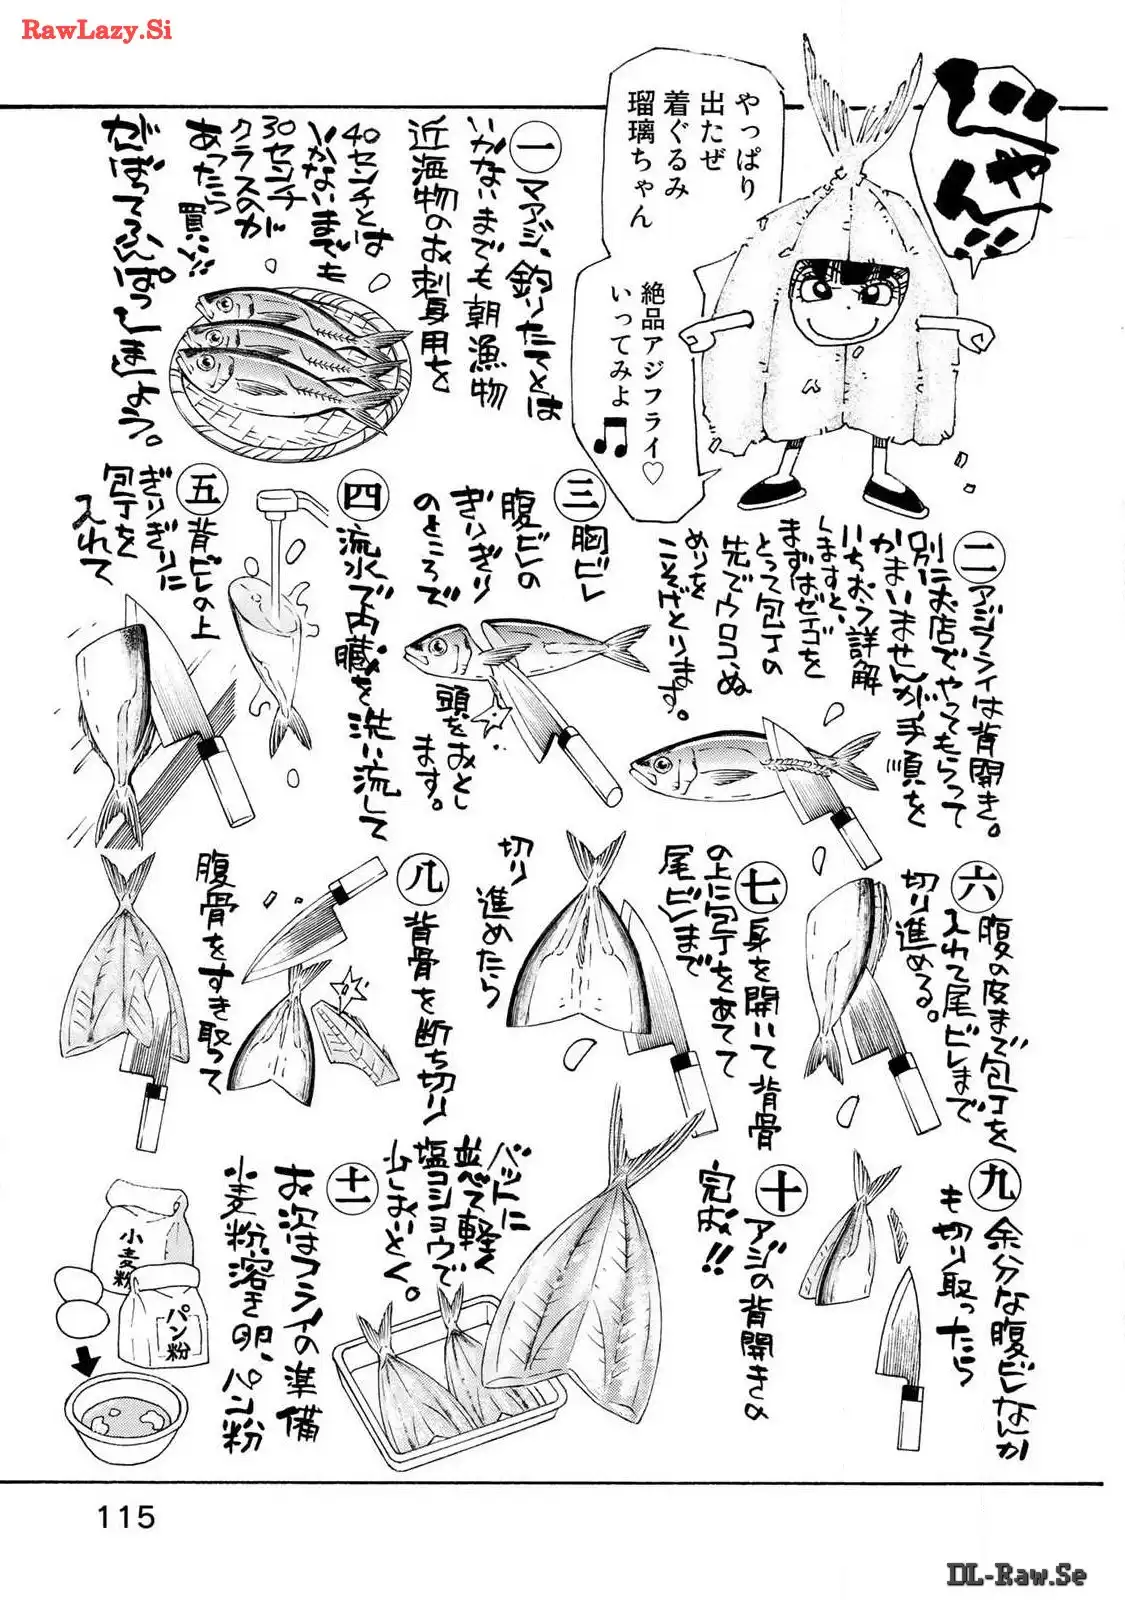 RawLazy.Si
じゃん!!
やっぱり
出たぜ
着ぐるみ
瑠璃ちゃん
絶品アジフライ♡
いってみよ♫
一 マアジ、釣りたてとは
いかないまでも朝漁物
近海物のお刺身用を
40センチとは
いかないまでも
30センチ
クラスのが
あったら
買い!!
がんばってふんぱつしましょう。
二 アジフライは背開き。
別にお店でやってもらって
かまいませんが手順を
いちおう詳解
しますと、
まずはゼイゴを
とって包丁の
先でウロコ、ぬ
めりを
こそげとります。
三 胸ビレ
腹ビレの
ぎりぎり
のところで
頭をおとし
ます。
四 流水で内臓を洗い流して
五 背ビレの上
ぎりぎりに
包丁を
入れて
六 腹の皮まで包丁を
入れて尾ビレまで
切り進める。
七 身を開いて背骨
の上に包丁をあてて
尾ビレまで
切り
進めたら
八 背骨を断ち切り
腹骨をすき取って
九 余分な腹ビレなんか
も切り取ったら
十 アジの背開きの
完成!!
バットに
並べて軽く
塩コショウで
しておく。
十一 お次はフライの準備
小麦粉、溶き卵、パン粉
小麦粉
パン粉
115
DL-Raw.Se